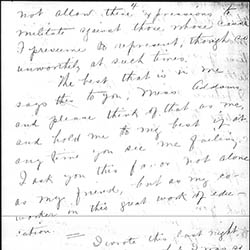 4
not allow these expressions to
militate against those whose cause
I presume to represent, though
unworthily at such times.
The best that is in me
says this to you, Miss Addams
and please think of that as me
and hold me to my best if at
any time you see me failing.
I ask you this favor not alone
as my friend, but as my co-
worker in this great work of edu-
cation.
I wrote this last night,